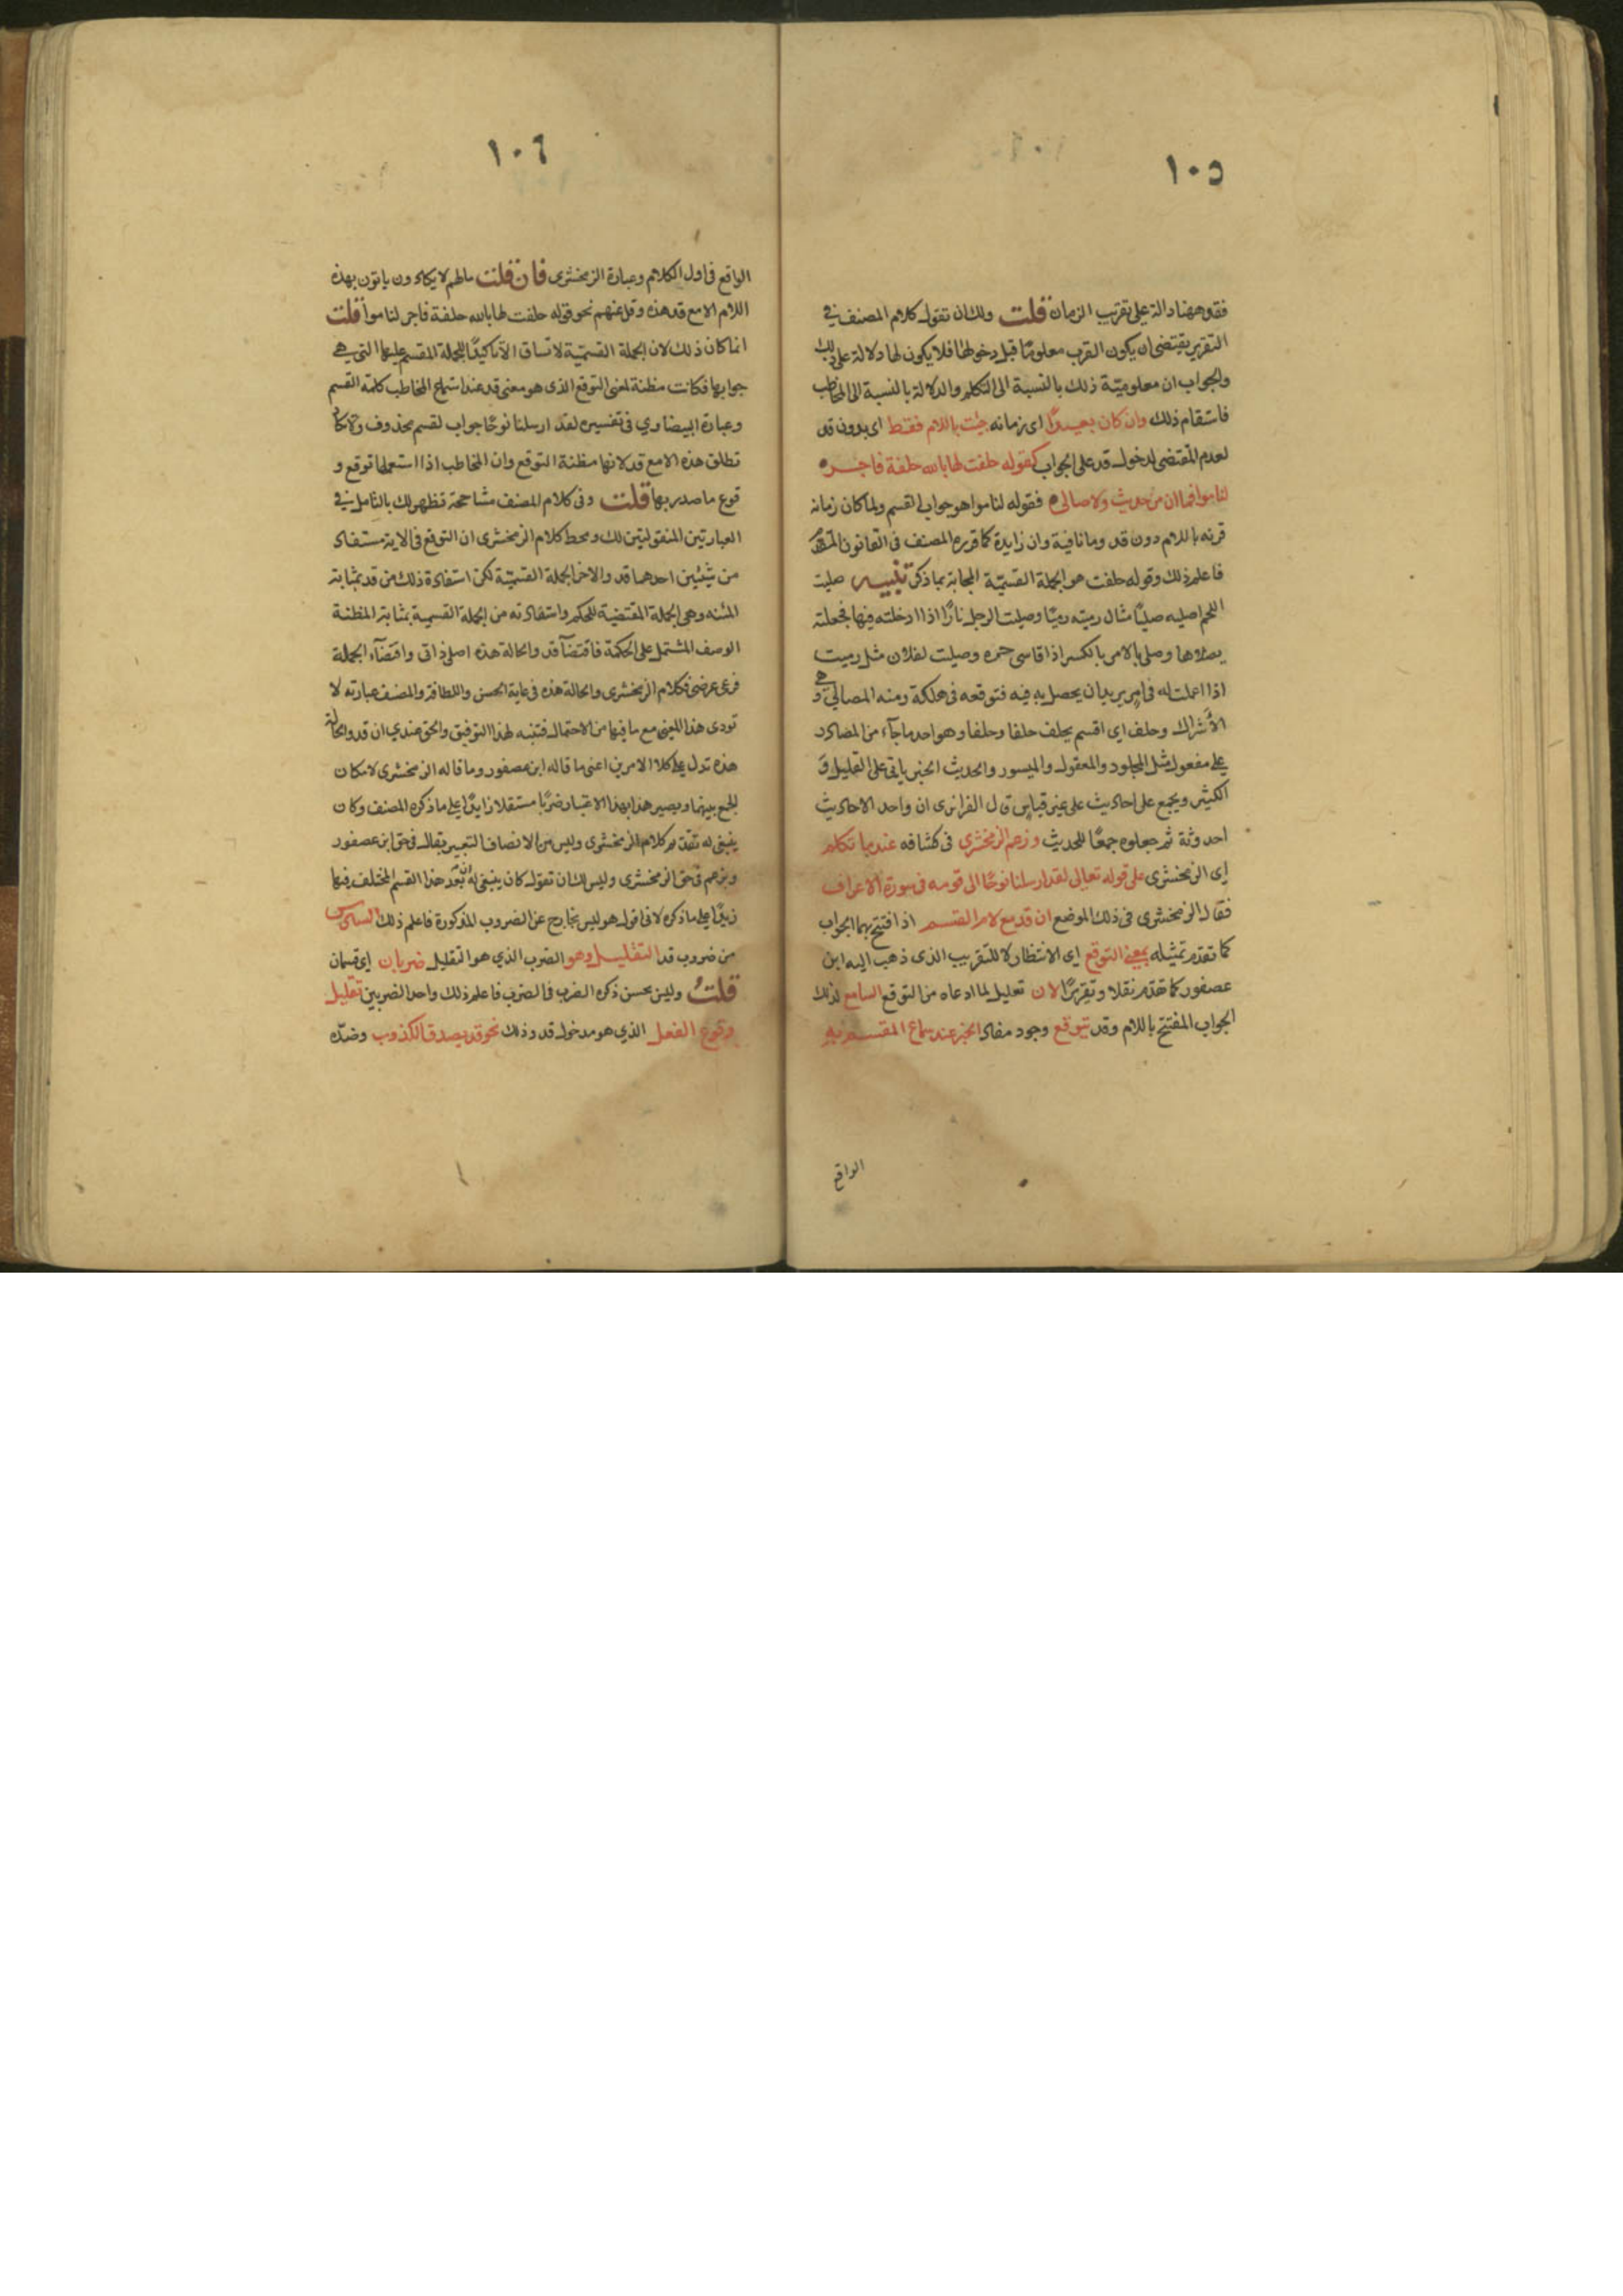 ١٠٥
فقد ههنا دالة على تقريب الزمان قلت ولك ان تقول كلام المصنف في
التقرير يقتضي ان يكون القرب معلومًا قبل دخولها فلا يكون لها دلالة على ذلك
والجواب ان معلوميّة ذلك بالنسبة الى المتكلم والدلالة بالنسبة الى المخاطب
فاستقام ذلك وان كان بعيدًا اى زمانه جئت باللام فقط اى بدون قد
لعدم المقتضى لدخول قد على الجواب كقوله حلفت لها بالله حلفة فاجر
لناموا فما ان من حديث ولا صالي فقوله لناموا هو جواب القسم ولما كان زمانه
قرنه باللام دون قد وما نافية وان زايدة كما قرره المصنف في القانون المتقدم
فاعلم ذلك وقوله حلفت هو الجملة القسميّة المجابة بما ذكر تنبيه صليت
اللحم اصليه صليًا مثال رميته رميًا وصليت الرجل نارًا اذا ادخلته فيها فجعلته
يصلاها وصلى بالامر بالكسر اذا قاسى حره وصليت لفلان مثل رميت
اذا عملت له في امر يريد ان يحصل به فيه فتوقعه في هلكة ومنه المصالي وهي
الأشراك وحلف اى اقسم يحلف حلفا وحلفا وهو احد ما جآء من المصادر
على مفعول مثل المجلود والمعقول والميسور والحديث الخبر ياتي على القليل و
الكثير ويجمع على احاديث على غير قياس قال الفرا نرى ان واحد الاحاديث
احدوثة ثم جعلوه جمعًا للحديث وزعم الزمخشري في كشافه عندما تكلم
اى الزمخشري على قوله تعالى لقد ارسلنا نوحًا الى قومه في سورة الاعراف
فقال الزمخشرى في ذلك الموضع ان قد مع لام القسم اذا افتتح بهما الجواب
كما تقدم تمثيله بمعنى التوقع اى الانتظار لا للتقريب الذى ذهب اليه ابن
عصفور كما تقدم نقلا وتقريرًا لان تعليل لما ادعاه من التوقع السامع لذلك
الجواب المفتتح باللام وقد يتوقع وجود مفاد الخبر عند سماع المقسم به
الواقع
١٠٦
الواقع في اول الكلام وعبارة الزمخشرى فان قلت مالهم لا يكادون ياتون بهذه
اللام الا مع قد هذه وقل عنهم نحو قوله حلفت لها بالله حلفة فاجر لناموا قلت
انما كان ذلك لان الجملة القسميّة لا تساق الا تاكيدًا للجملة المقسم عليها التي هي
جوابها فكانت مظنة لمعنى التوقع الذى هو معنى قد عند استماع المخاطب كلمة القسم
وعبارة البيضاوي في تفسيره لقد ارسلنا نوحًا جواب لقسم محذوف ولا تكاد
تطلق هذه الا مع قد لانها مظنة التوقع وان المخاطب اذا استعملها توقع و
قوع ما صدر بها قلت وفي كلام المصنف مشاححة تظهر لك بالتامل في
العبارتين المنقولتين لك ومحط كلام الزمخشرى ان التوقع في الاية مستفاد
من شيئين احدهما قد والاخر الجملة القسميّة لكن استفادة ذلك من قد بمثابة
المئنه وهى الجملة المقتضية للحكم واستفادته من الجملة القسمية بمثابة المظنة
الوصف المشتمل على الحكمة فاقتضآ قد والحالة هذه اصلي ذاتي واقتضآء الجملة
فرعى عرضى فكلام الزمخشرى والحالة هذه في غاية الحسن واللطافة والمصنف عبارته لا
تودى هذا المعنى مع ما فيها من الاحتمال فتنبه لهذا التوفيق والحق عندي ان قد والحالة
هذه تدل على كلا الامرين اعنى ما قاله ابن عصفور وما قاله الزمخشرى لامكان
الجمع بينهما ويصير هذا بهذا الاعتبار ضربًا مستقلا زايدًا على ما ذكره المصنف وكان
ينبغى له تقديم كلام الزمخشرى وليس من الانصاف التعبير بقال في حق ابن عصفور
وبزعم في حق الزمخشرى وليس لك ان تقول كان ينبغى له ان يعد هذا القسم المختلف فيها
زيدًا على ما ذكره لانى اقول هو ليس بخارج عن الضروب المذكورة فاعلم ذلك السادس
من ضروب قد التقليل وهو الضرب الذي هو التقليل ضربان اى قسمان
قلتُ وليس بحسن ذكره الضرب في الضرب فاعلم ذلك واحد الضربين تقليل
وقوع الفعل الذي هو مدخول قد وذلك نحو قد يصدق الكذوب وضدّه